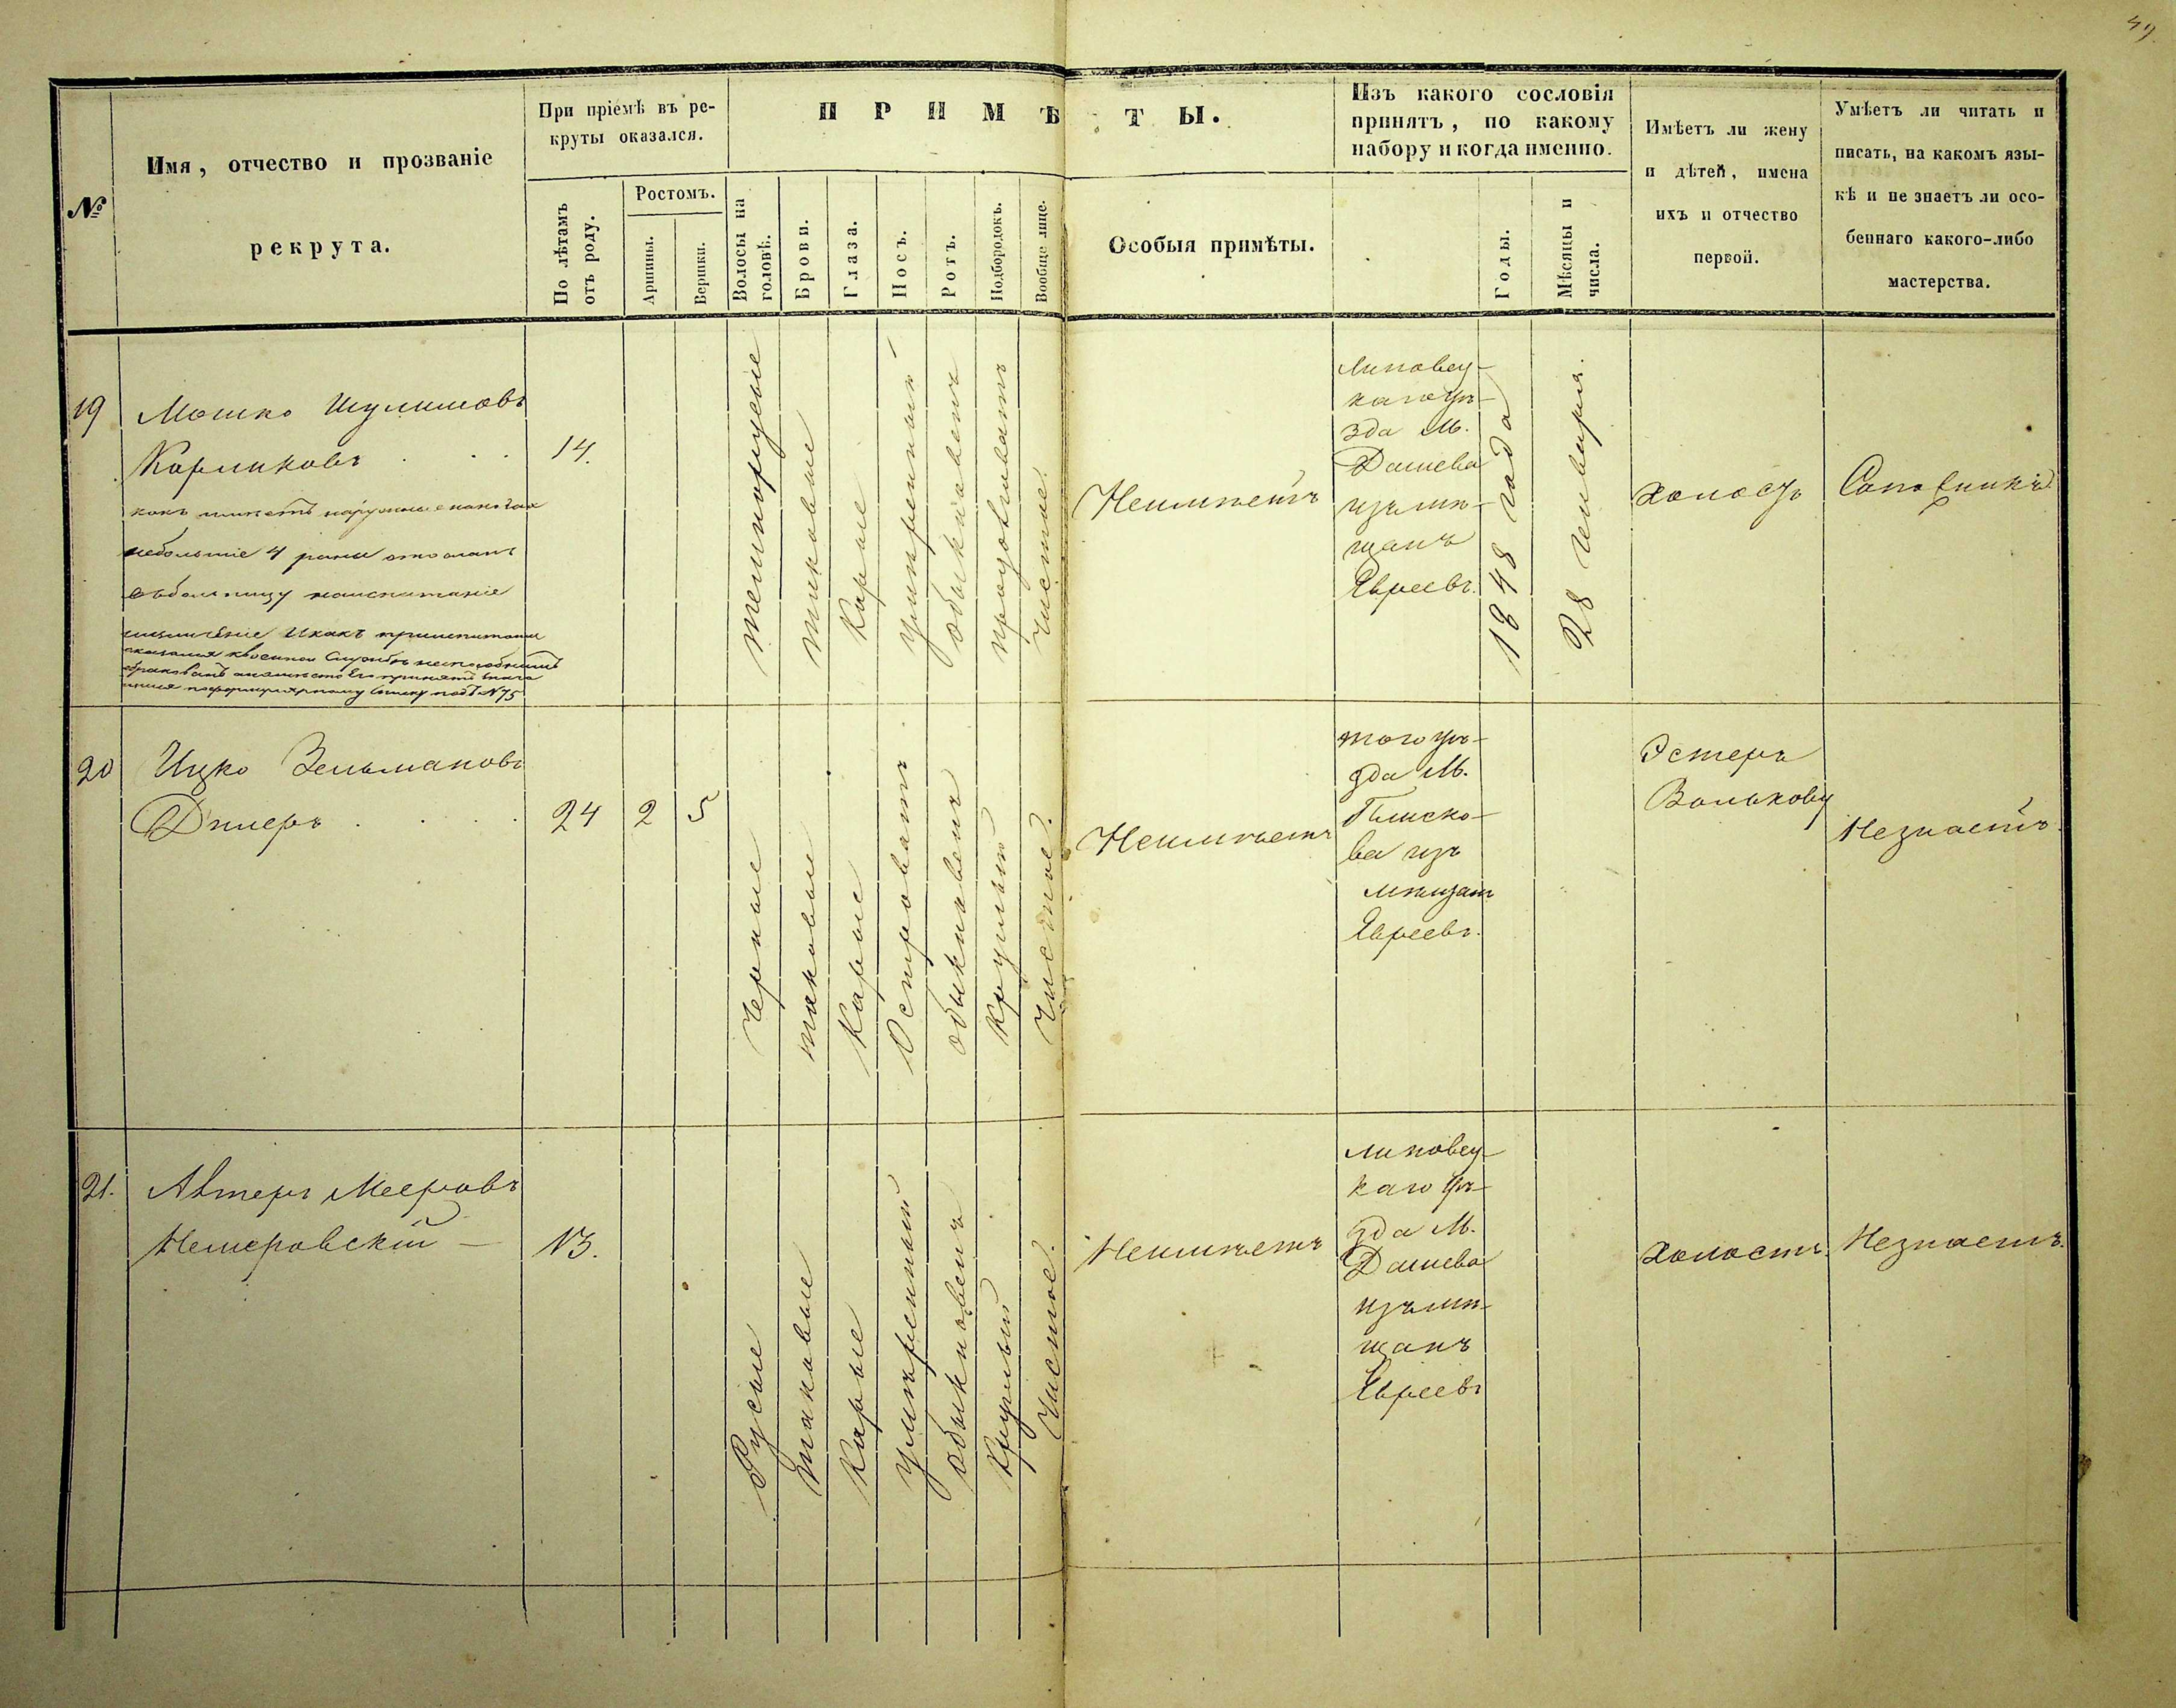 49.
№
Имя, отчество и прозваніе
рекрута.
При пріемѣ въ ре-
круты оказался.
По лѣтамъ
отъ роду.
Ростомъ.
Аршины.
Вершки.
ПРИМѢТЫ.
Волосы на
головѣ.
Брови.
Глаза.
Носъ.
Ротъ.
Подбородокъ.
Вообще лице.
Особыя примѣты.
Изъ какого сословія
принятъ, по какому
набору и когда именно.
Годы.
Мѣсяцы и
числа.
Имѣетъ ли жену
и дѣтей, имена
ихъ и отчество
первой.
Умѣетъ ли читать и
писать, на какомъ язы-
кѣ и не знаетъ ли осо-
беннаго какого-либо
мастерства.
19
Мошко Шулимовъ
14.
небольшіе 4 раны
въ больницу
№ 75
темнорусые
таковые
Карие
умѣренный
обыкновенъ
продолговатъ
Чистое.
Неимѣетъ
Липовец-
каго уѣ-
зда М.
Дашева
изъ мѣ-
щанъ
Евреевъ.
1848 года
28 генваря.
холостъ
Сапожникъ
20
Ицко Зельмановъ
24
2
5
Черные
таковые
Карые
Островатъ
обыкновенъ
Круглый
Чистое.
Неимѣетъ
того уѣ-
зда М.
Плиско-
ва изъ
мѣщанъ
Евреевъ.
Эстеръ
Волькову
Незнаетъ.
21.
Авнеръ Мееровъ
Немеровскій —
13.
Русые
таковые
Карые
умѣренный
обыкновенъ
Круглый
Чистое.
Неимѣетъ
Липовец-
каго уѣ-
зда М.
Дашева
изъ мѣ-
щанъ
Евреевъ
Холостъ.
Незнаетъ.